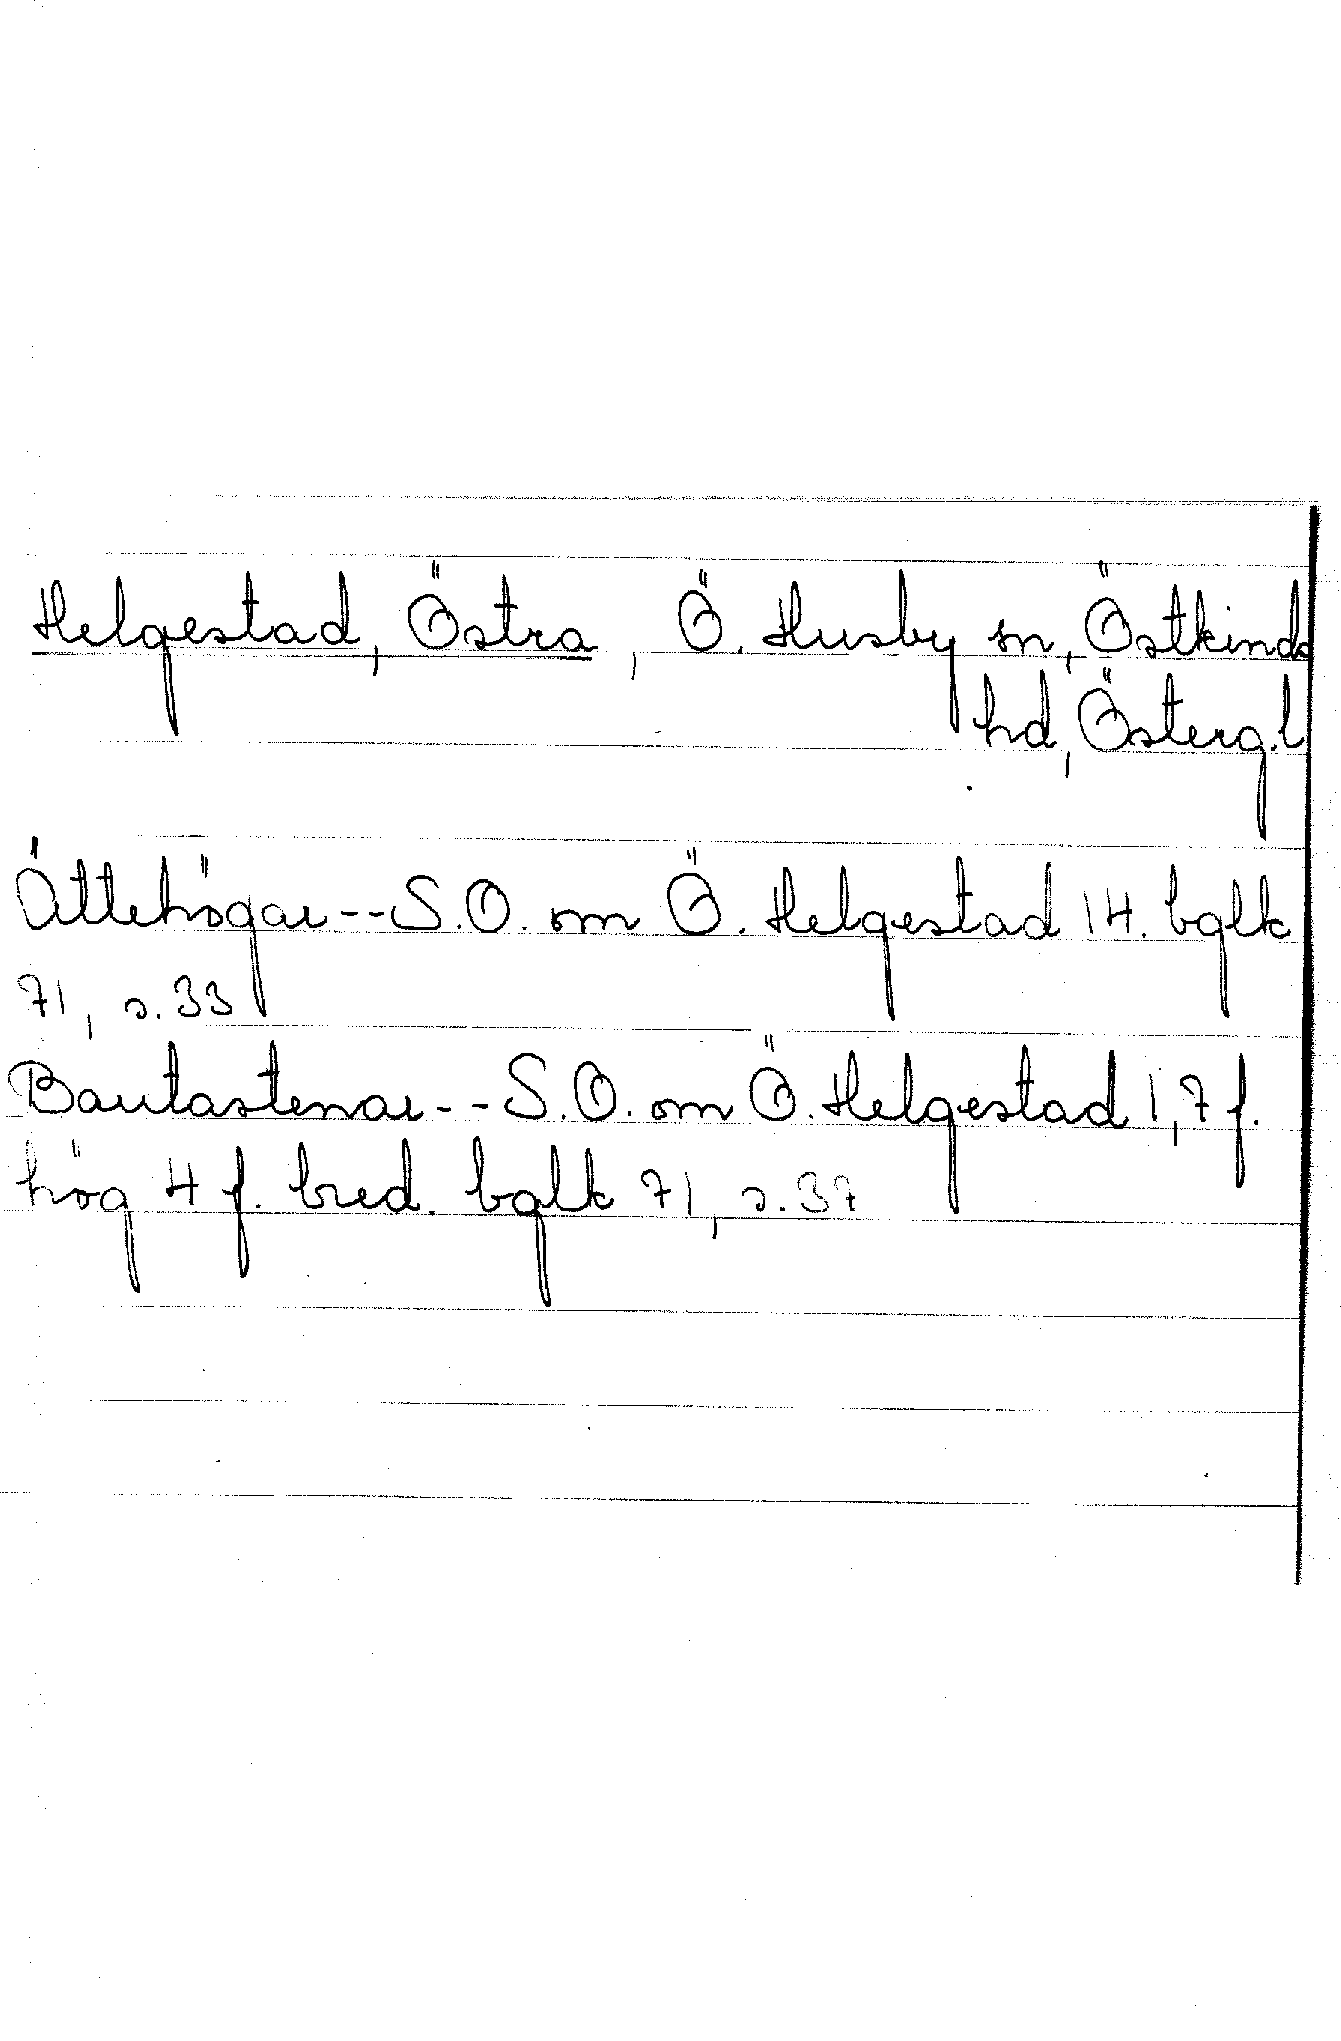 Helgestad, Östra, Ö. Husby sn, Östkinds
hd, Österg.l
Ättehögar--S.O. om Ö. Helgestad 14. bglk
71, s.33
Bautastenar--S.O. om Ö. Helgestad 1,7 f.
hög 4 f. bred. bglk 71, s.37